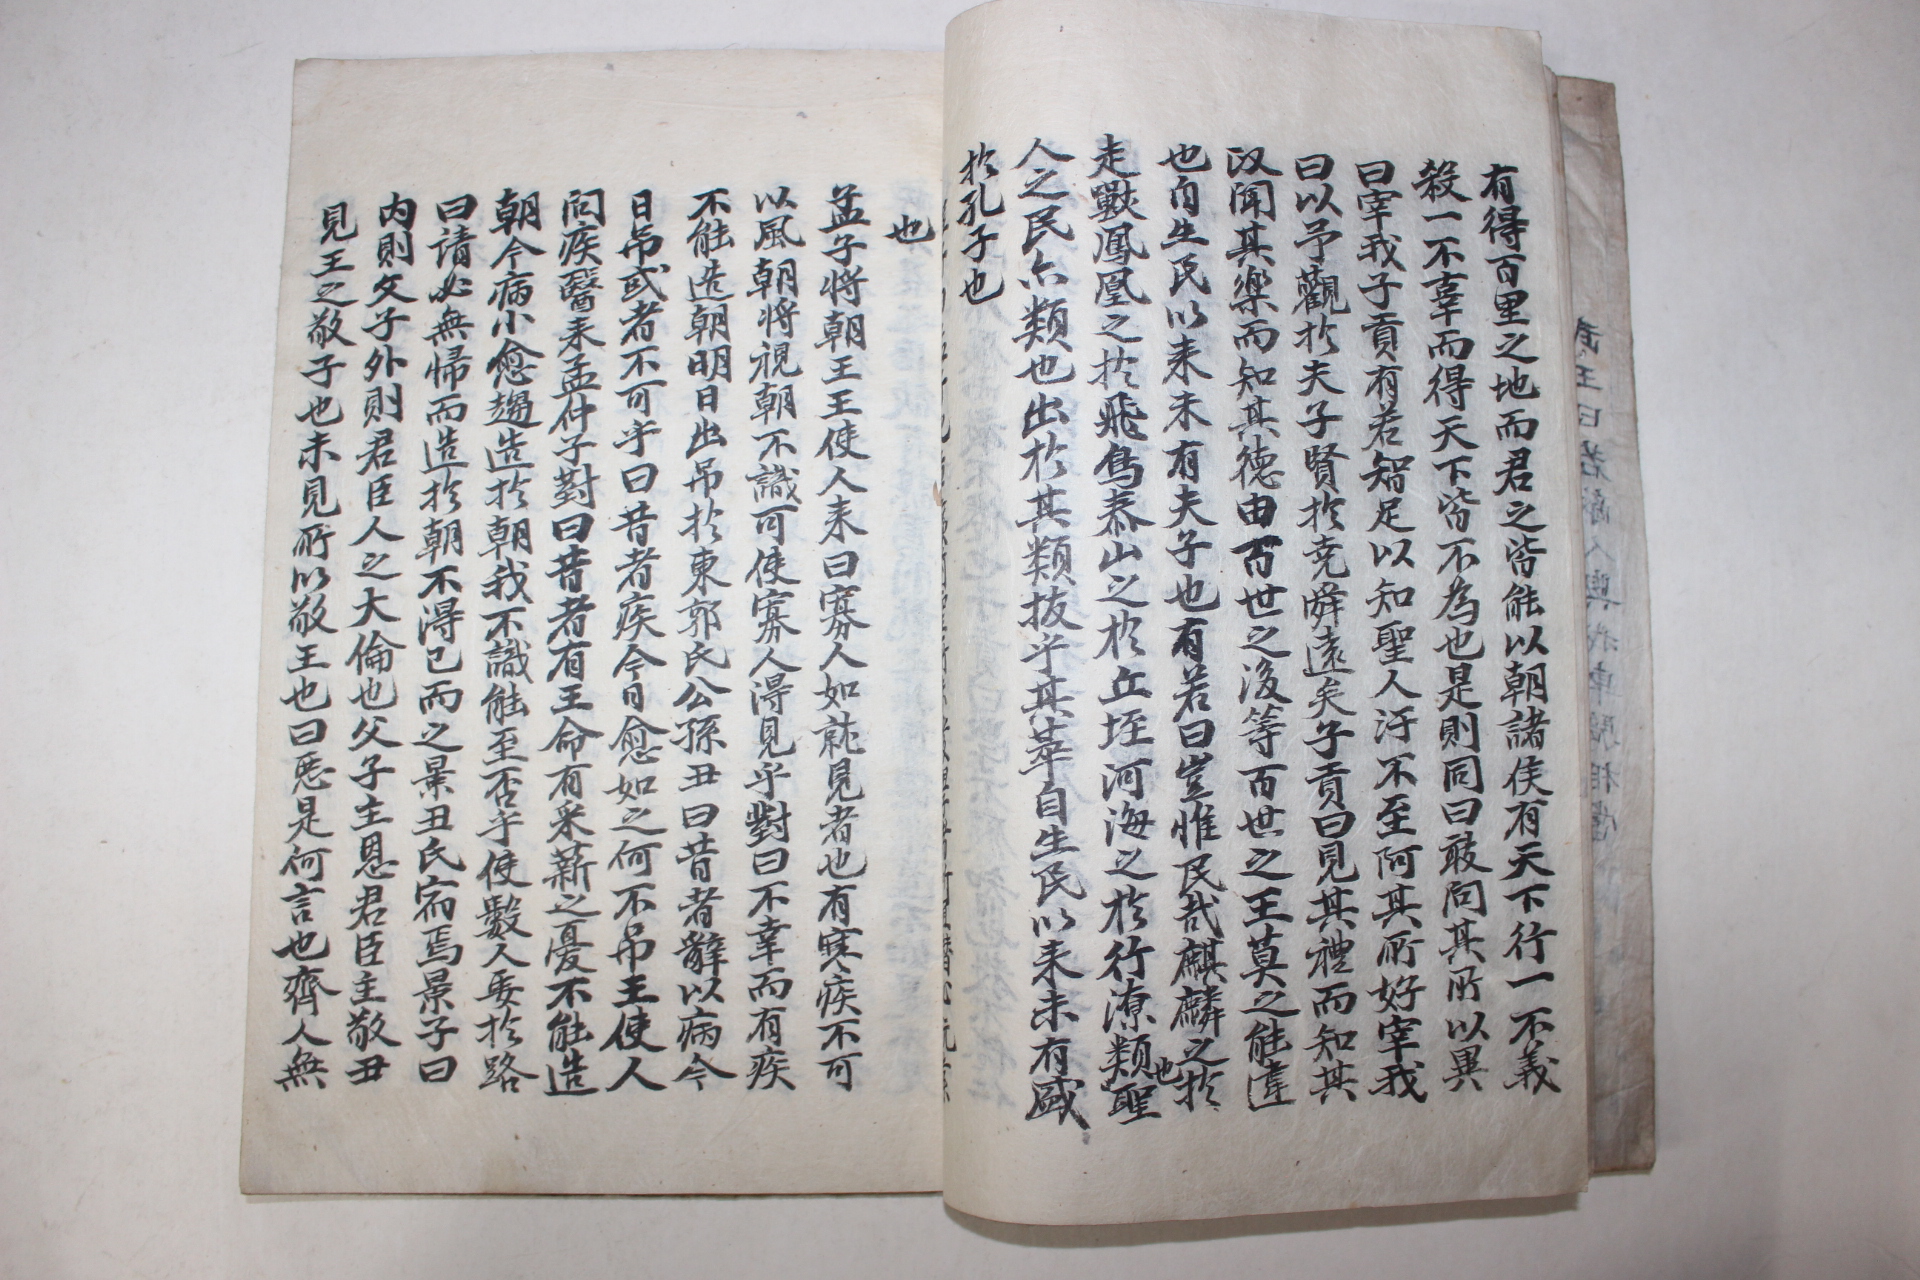 有得百里之地而君之皆能以朝諸侯有天下行一不義
殺一不辜而得天下皆不為也是則同曰敢問其所以異
曰宰我子貢有若智足以知聖人汙不至阿其所好宰我
曰以予觀於夫子賢於堯舜遠矣子貢曰見其禮而知其
政聞其樂而知其德由百世之後等百世之王莫之能違
也自生民以来未有夫子也有若曰豈惟民哉麒麟之於
走獸鳳凰之於飛鳥泰山之於丘垤河海之於行潦類也聖
人之民亦類也出於其類拔乎其萃自生民以来未有盛
於孔子也
也
孟子将朝王王使人来曰寡人如就見者也有寒疾不可
以風朝将視朝不識可使寡人得見乎對曰不幸而有疾
不能造朝明日出吊於東郭氏公孫丑曰昔者辭以病今
日吊或者不可乎曰昔者疾今日愈如之何不吊王使人
問疾醫来孟仲子對曰昔者有王命有采薪之憂不能造
朝今病小愈趨造於朝我不識能至否乎使數人要於路
曰請必無歸而造於朝不得已而之景丑氏宿焉景子曰
内則父子外則君臣人之大倫也父子主恩君臣主敬丑
見王之敬子也未見所以敬王也曰惡是何言也齊人無